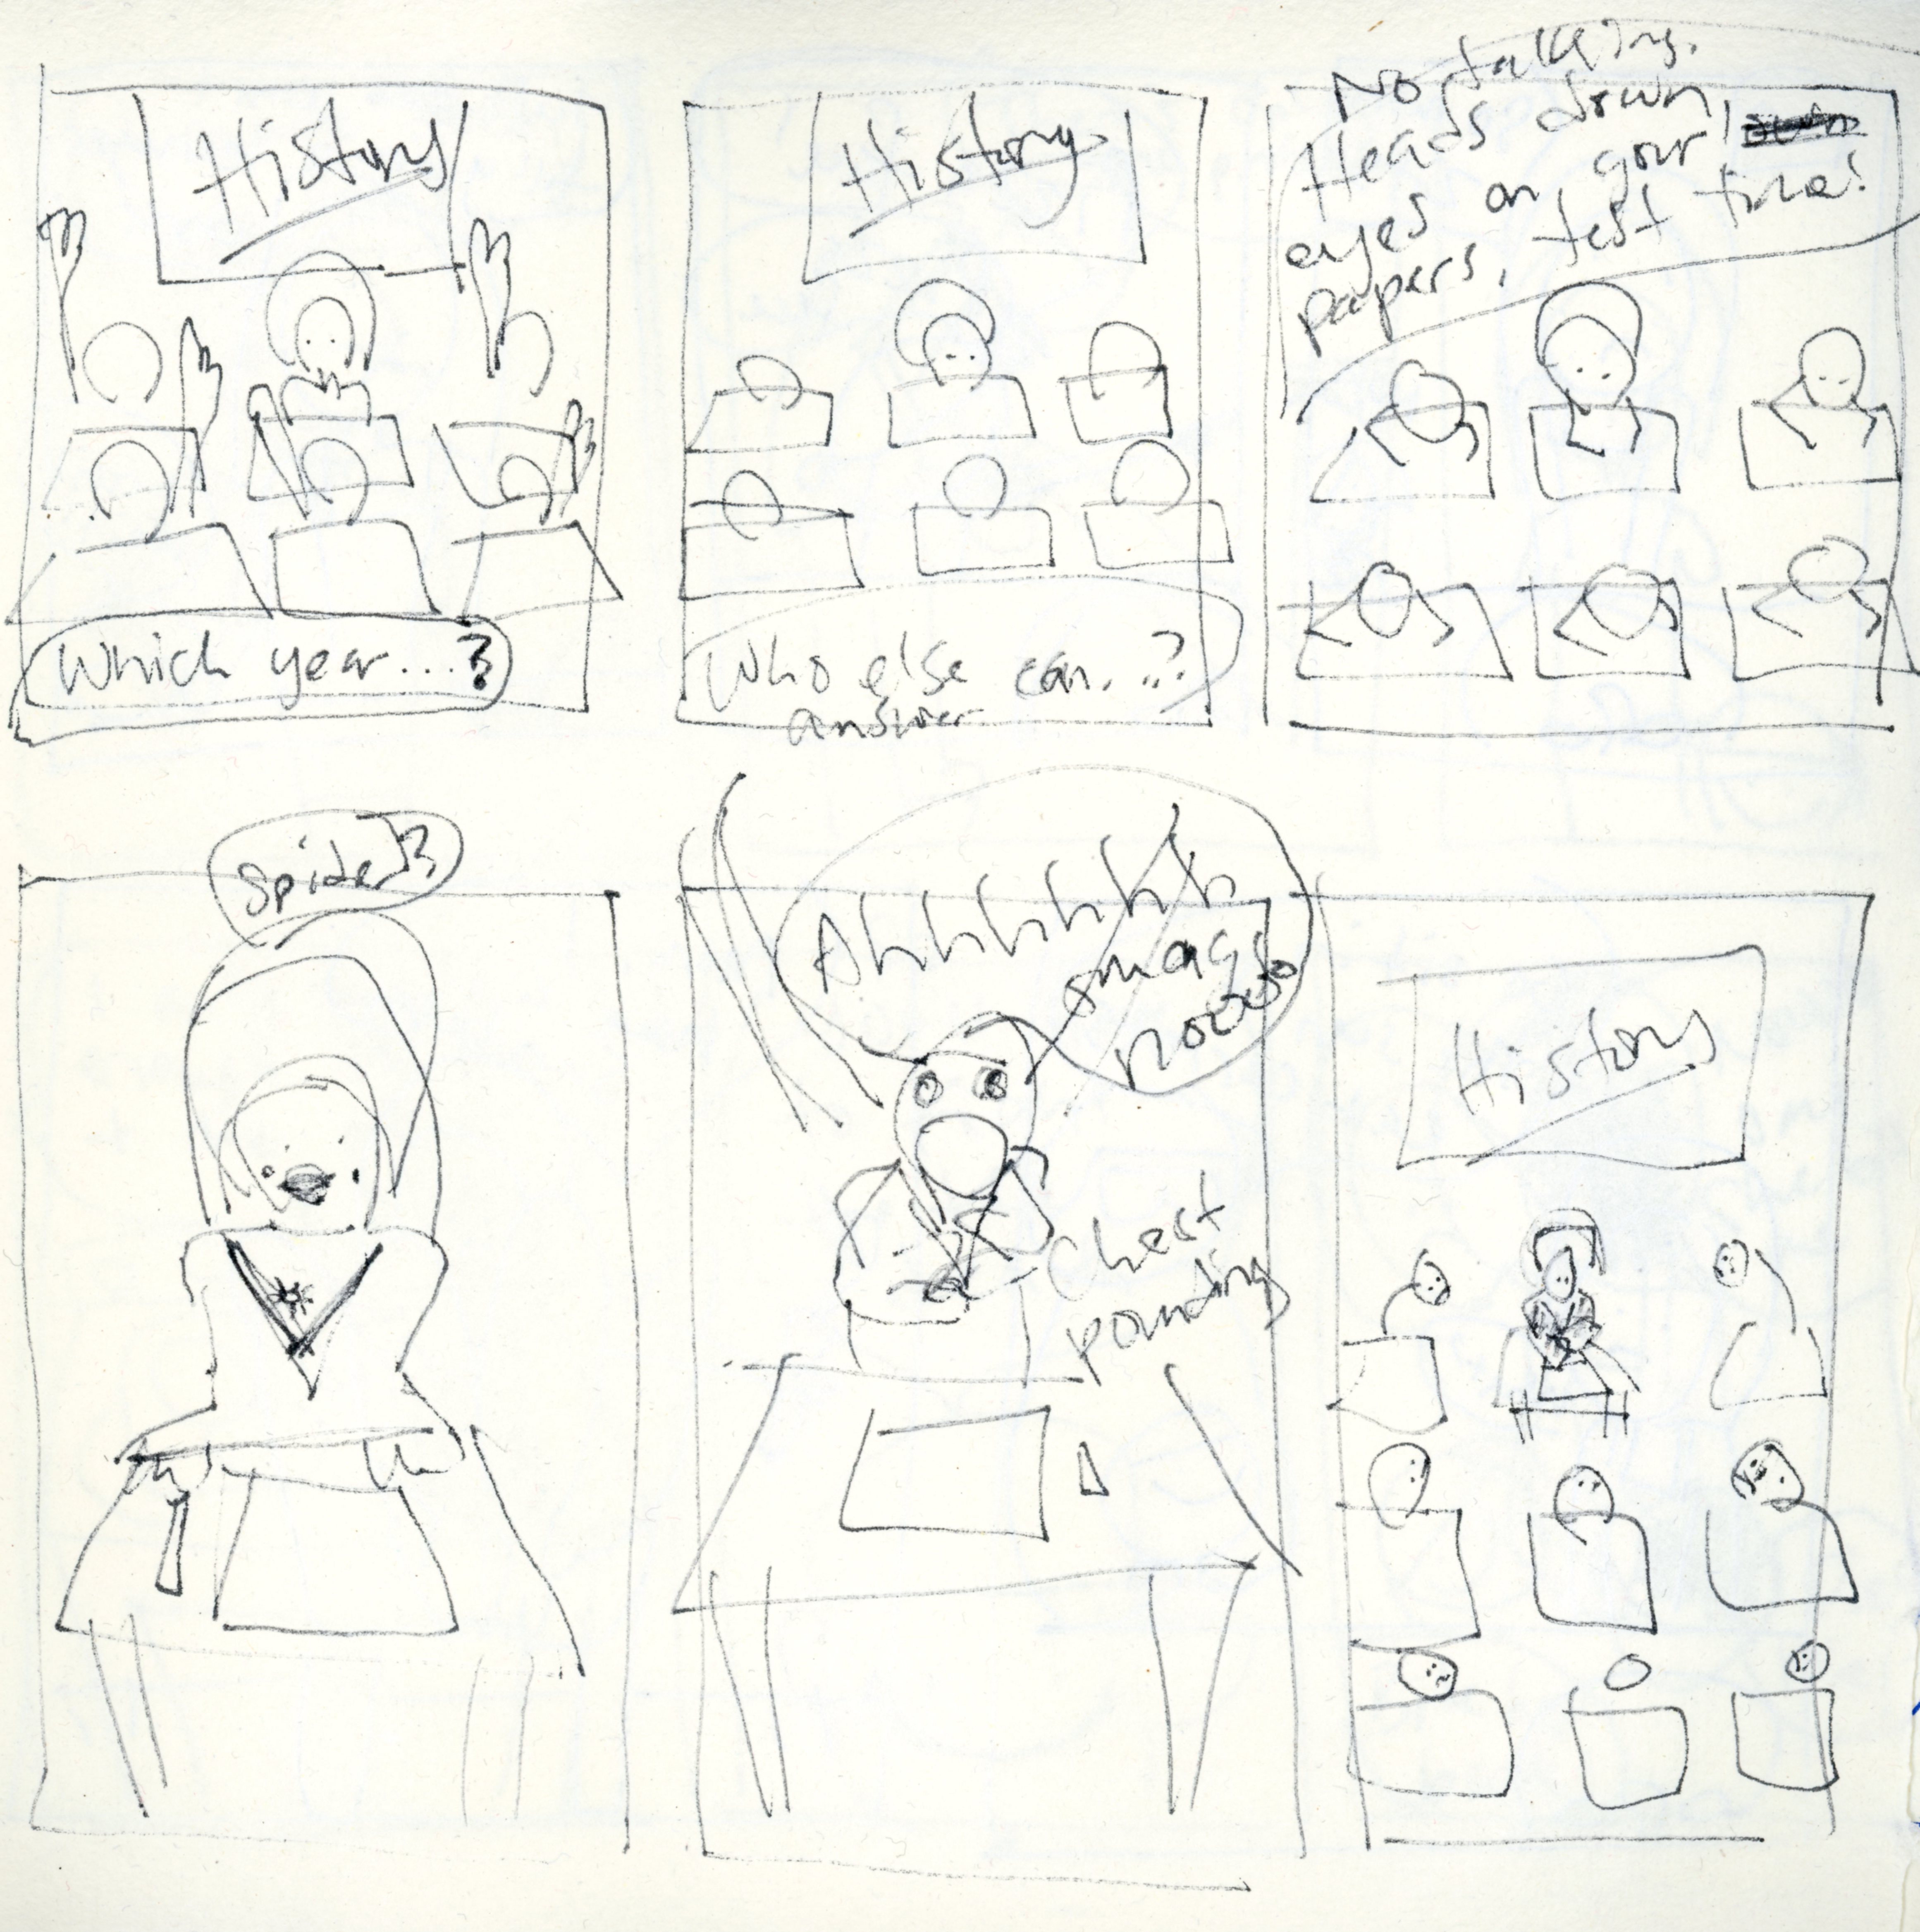 History
Which year...?
History
Who else can...?
answer
No talking.
Heads down,
eyes on your
papers, test time!
Spider?
Ahhhhhhh
Chest
pounding
History